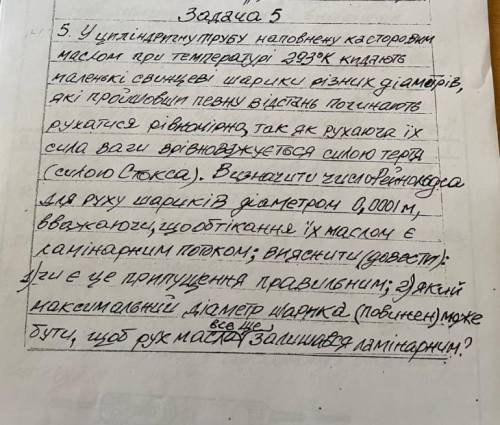 Задача 5
5. У циліндричну трубу наповнену касторовим
маслом при температурі 293°К кидають
маленькі свинцеві шарики різних діаметрів,
які пройшовши певну відстань починають
рухатися рівномірно, так як рухаюча їх
сила ваги врівноважується силою тертя
(силою Стокса). Визначити число Рейнольдса
для руху шариків діаметром 0,0001м,
вважаючи, що обтікання їх маслом є
ламінарним потоком; вияснити (довести):
1) чи є це припущення правильним; 2) який
максимальний діаметр шарика (повинен) може
бути, щоб рух масла все ще залишався ламінарним?